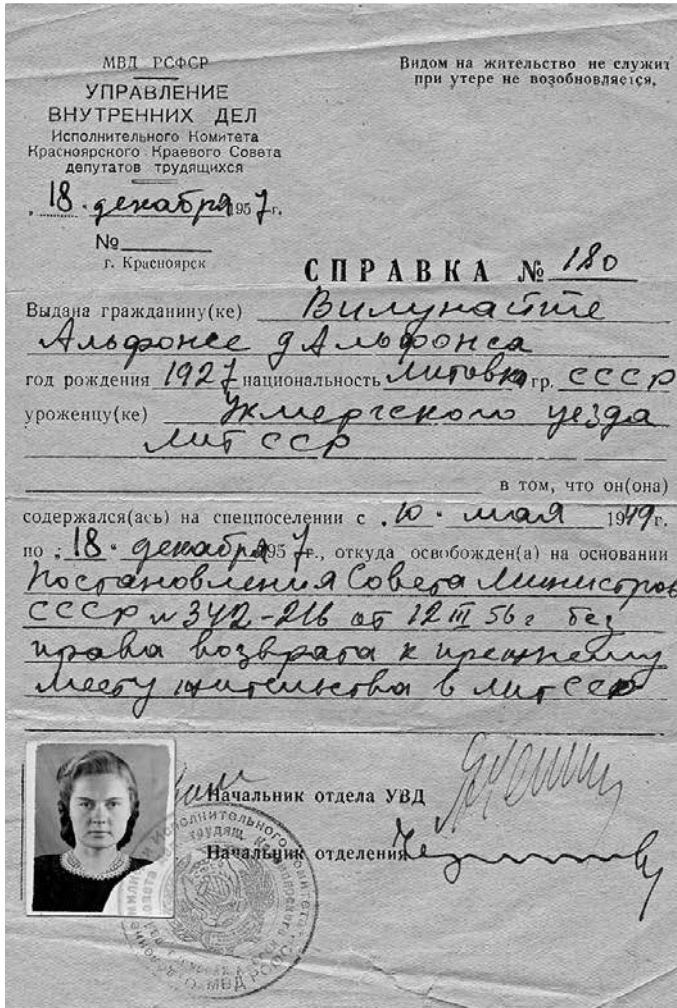 МВД РСФСР
УПРАВЛЕНИЕ
ВНУТРЕННИХ ДЕЛ
Исполнительного Комитета
Красноярского Краевого Совета
депутатов трудящихся
„18“ декабря 1957 г.
№
г. Красноярск
Видом на жительство не служит
при утере не возобновляется.
СПРАВКА № 180
Выдана гражданину(ке) Вилунайте
Альфонсе д Альфонса
год рождения 1927 национальность литовка гр. СССР
уроженцу(ке) Укмергского уезда
Лит ССР
в том, что он(она)
содержался(ась) на спецпоселении с „10“ мая 1949 г.
по „18“ декабря 1957 г., откуда освобожден(а) на основании
Постановления Совета Министров
СССР № 342-216 от 12 III 56 г без
права возврата к прежнему
месту жительства в Лит ССР
Начальник отдела УВД
Начальник отделения